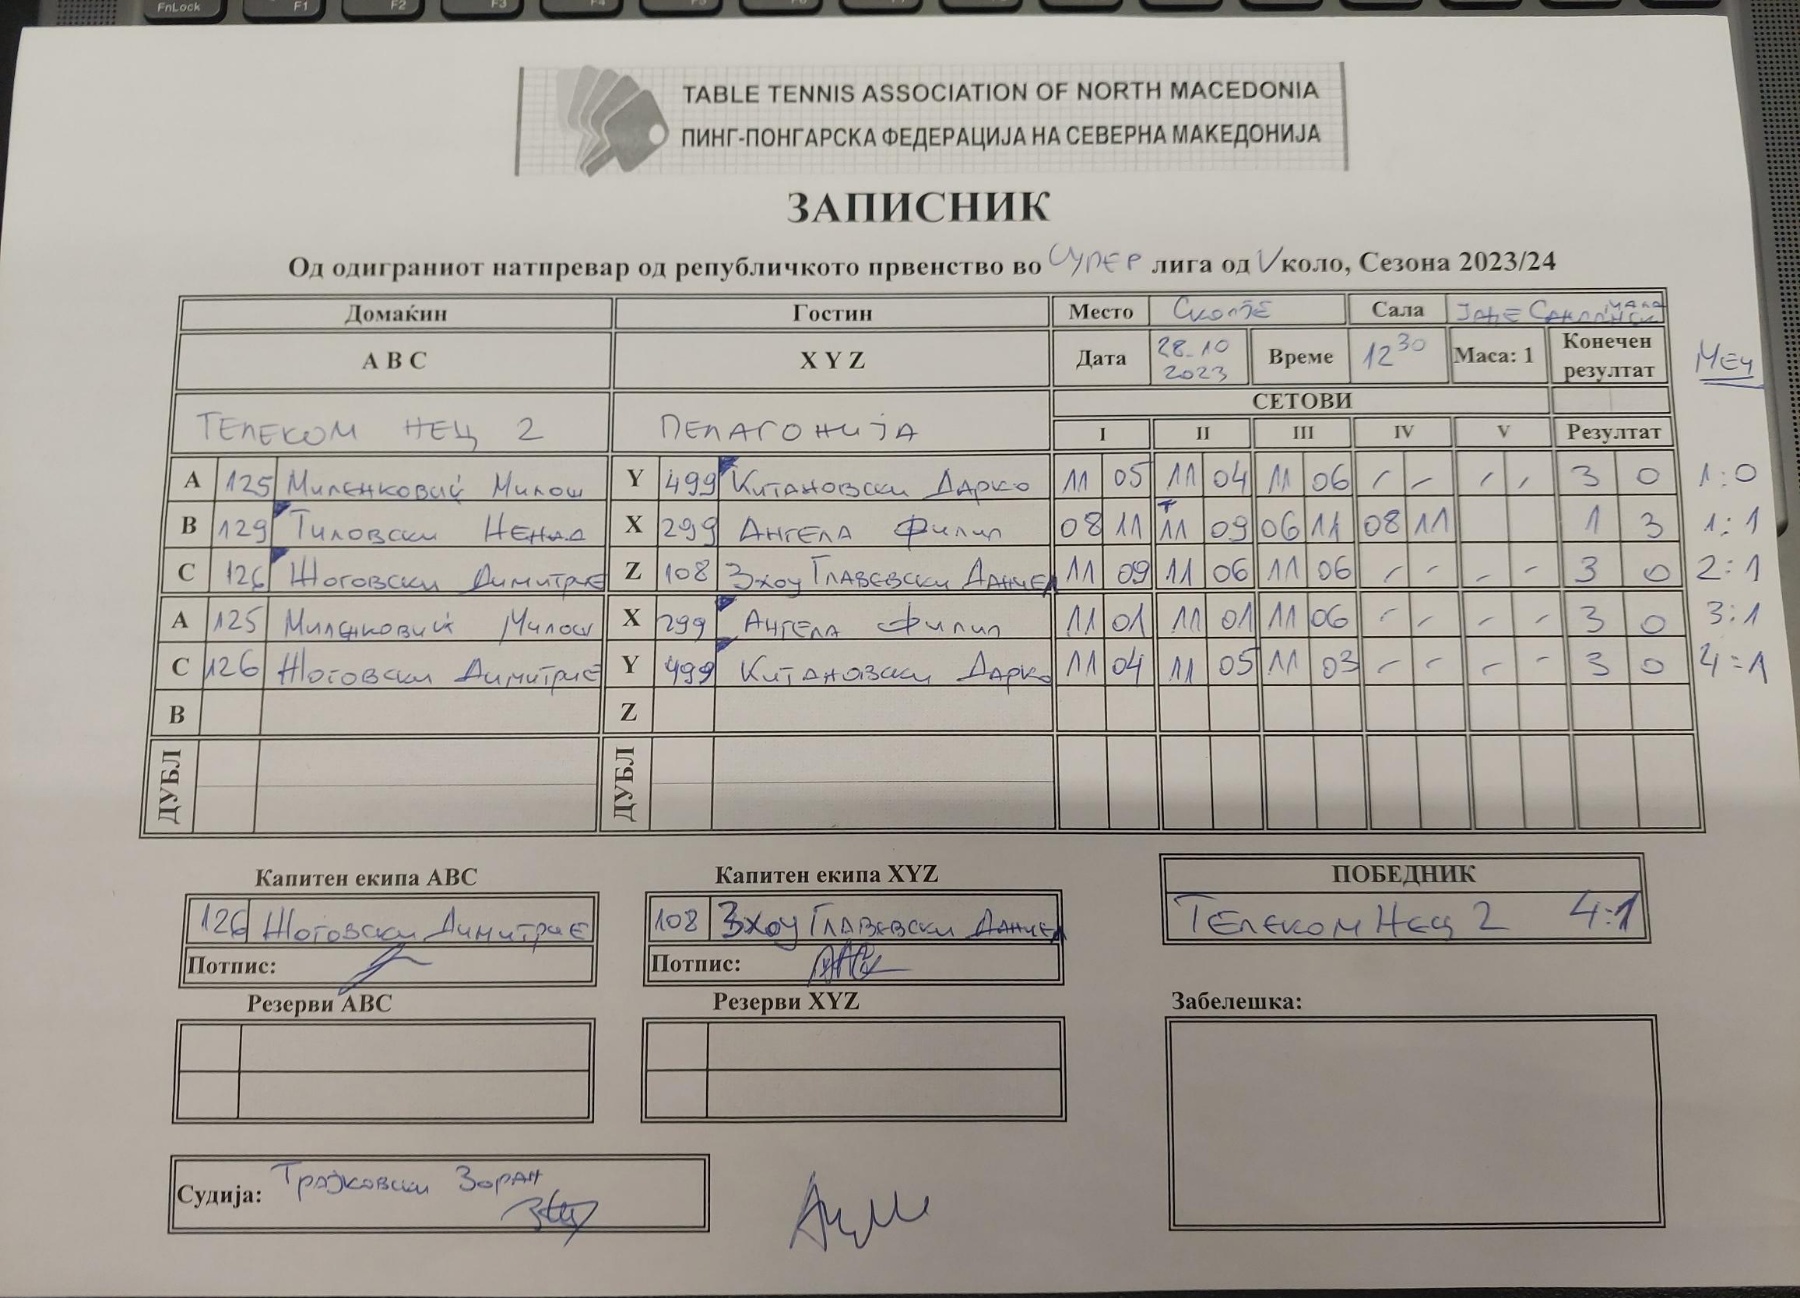 FnLock F1 F2 F3 F4
TABLE TENNIS ASSOCIATION OF NORTH MACEDONIA
ПИНГ-ПОНГАРСКА ФЕДЕРАЦИЈА НА СЕВЕРНА МАКЕДОНИЈА
ЗАПИСНИК
Од одиграниот натпревар од републичкото првенство во СУПЕР лига од V коло, Сезона 2023/24
Домаќин Гостин Место Скопје Сала Јане Сандански мала
A B C X Y Z Дата 28.10 2023 Време 12 30 Маса: 1 Конечен резултат Меч
СЕТОВИ
ТЕЛЕКОМ НЕЦ 2 ПЕЛАГОНИЈА I II III IV V Резултат
A 125 Миленковиќ Милош Y 499 Китановски Дарко 11 05 11 04 11 06 - - - - 3 0 1:0
B 129 Тиловски Ненад X 299 Ангела Филип 08 11 11 09 06 11 08 11 1 3 1:1
C 126 Жоговски Димитрие Z 108 Зхоу Главевски Даниел 11 09 11 06 11 06 - - - - 3 0 2:1
A 125 Миленковиќ Милош X 299 Ангела Филип 11 01 11 01 11 06 - - - - 3 0 3:1
C 126 Жоговски Димитрие Y 499 Китановски Дарко 11 04 11 05 11 03 - - - - 3 0 4:1
B Z
ДУБЛ ДУБЛ
Капитен екипа ABC Капитен екипа XYZ ПОБЕДНИК
126 Жоговски Димитрие 108 Зхоу Главевски Даниел Телеком Нец 2 4:1
Потпис: Потпис:
Резерви ABC Резерви XYZ Забелешка:
Судија: Трајковски Зоран